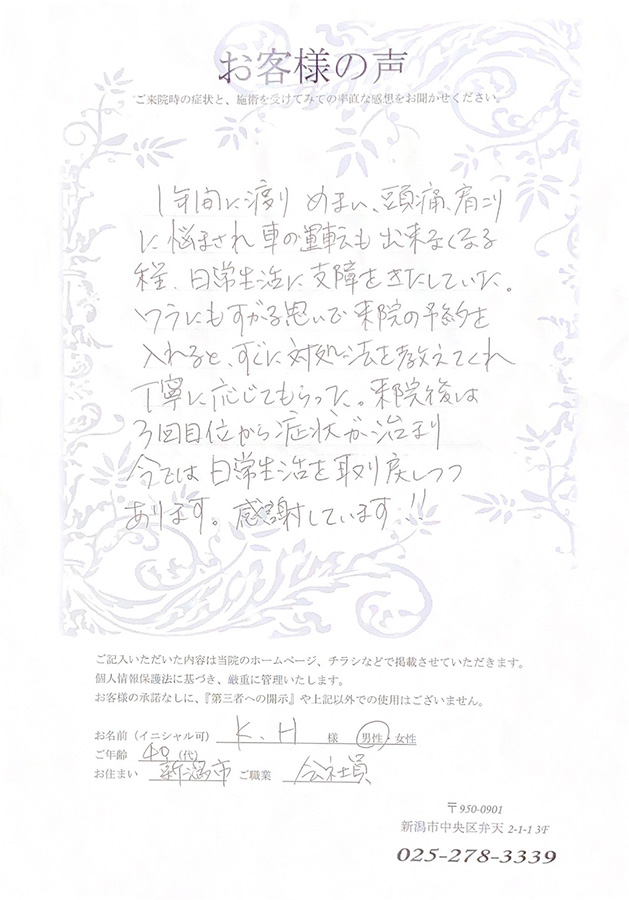 お客様の声
ご来院時の症状と、施術を受けてみての率直な感想をお聞かせください。
1年間に渡り めまい、頭痛、肩こり
に悩まされ車の運転も出来なくなる
程、日常生活に支障をきたしていた。
ワラにもすがる思いで来院の予約を
入れると、すぐに対処法を教えてくれ
丁寧に応じてもらった。来院後は
3回目位から症状が治まり
今では日常生活を取り戻しつつ
あります。感謝しています!!
ご記入いただいた内容は当院のホームページ、チラシなどで掲載させていただきます。
個人情報保護法に基づき、厳重に管理いたします。
お客様の承諾なしに、『第三者への開示』や上記以外での使用はございません。
お名前（イニシャル可） K.H 様 男性・女性
ご年齢 40（代）
お住まい 新潟市 ご職業 会社員
〒950-0901
新潟市中央区弁天 2-1-1 3F
025-278-3339